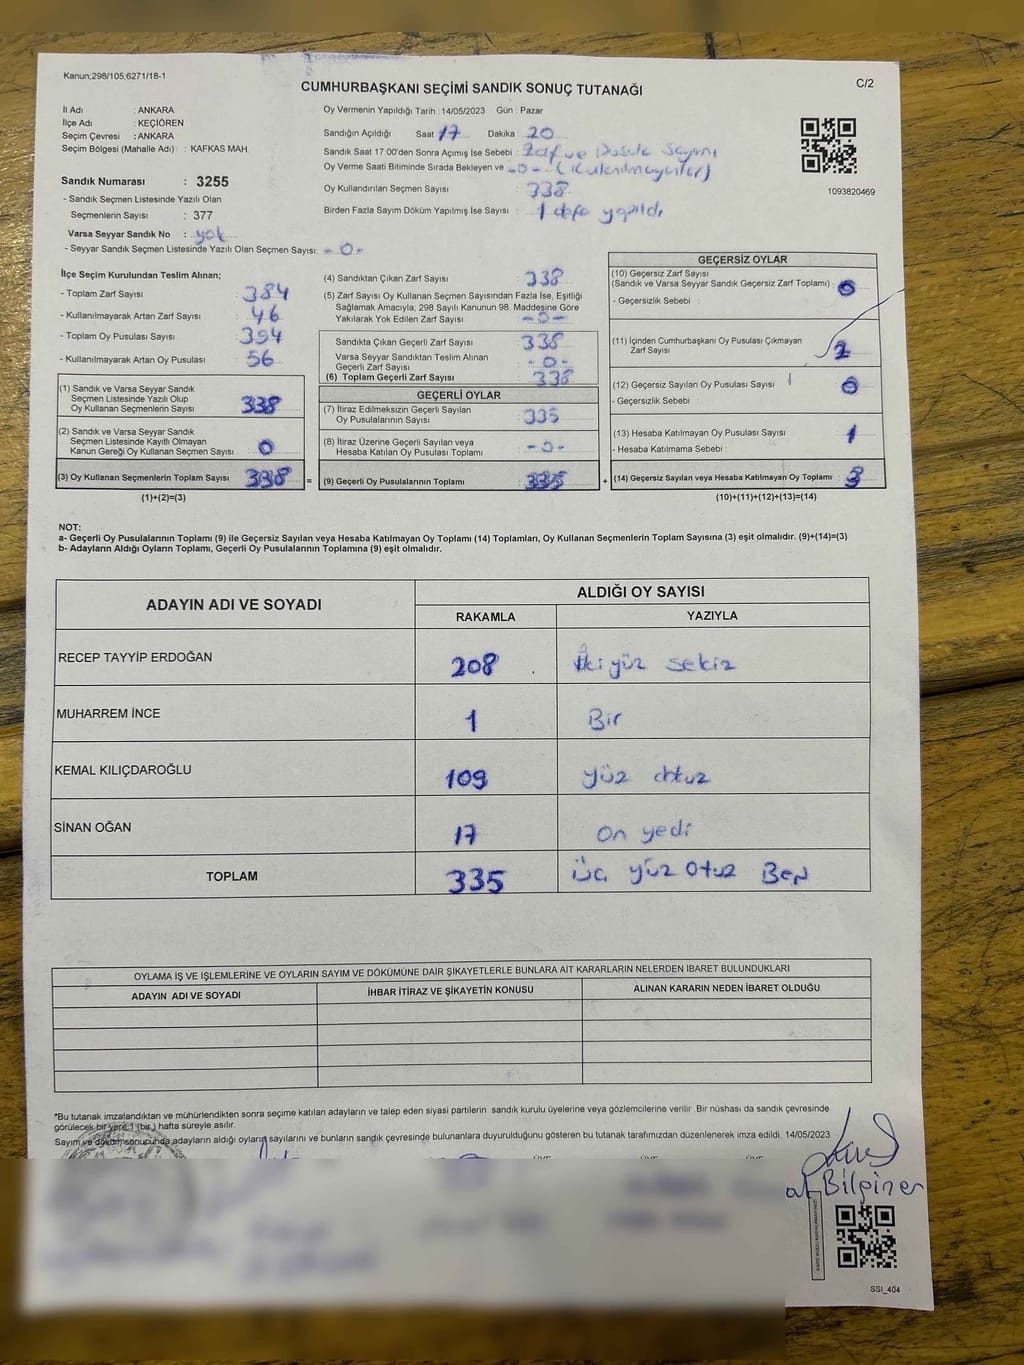 Kanun;298/105,6271/18-1
CUMHURBAŞKANI SEÇİMİ SANDIK SONUÇ TUTANAĞI
C/2
İl Adı : ANKARA
İlçe Adı : KEÇİÖREN
Seçim Çevresi : ANKARA
Seçim Bölgesi (Mahalle Adı) : KAFKAS MAH.
Sandık Numarası : 3255
- Sandık Seçmen Listesinde Yazılı Olan
Seçmenlerin Sayısı : 377
Varsa Seyyar Sandık No : yok
- Seyyar Sandık Seçmen Listesinde Yazılı Olan Seçmen Sayısı: -0-
Oy Vermenin Yapıldığı Tarih : 14/05/2023 Gün : Pazar
Sandığın Açıldığı Saat 17 Dakika 20
Sandık Saat 17:00'den Sonra Açımış İse Sebebi : Zarf ve Pusula Sayımı
Oy Verme Saati Bitiminde Sırada Bekleyen ve -0- (
Oy Kullandırılan Seçmen Sayısı 338
Birden Fazla Sayım Döküm Yapılmış İse Sayısı : 1 defa yapıldı
1093820469
İlçe Seçim Kurulundan Teslim Alınan;
- Toplam Zarf Sayısı : 384
- Kullanılmayarak Artan Zarf Sayısı : 46
- Toplam Oy Pusulası Sayısı : 394
- Kullanılmayarak Artan Oy Pusulası : 56
(1) Sandık ve Varsa Seyyar Sandık
Seçmen Listesinde Yazılı Olup
Oy Kullanan Seçmenlerin Sayısı 338
(2) Sandık ve Varsa Seyyar Sandık
Seçmen Listesinde Kayıtlı Olmayan
Kanun Gereği Oy Kullanan Seçmen Sayısı : 0
(3) Oy Kullanan Seçmenlerin Toplam Sayısı 338 =
(1)+(2)=(3)
(4) Sandıktan Çıkan Zarf Sayısı : 338
(5) Zarf Sayısı Oy Kullanan Seçmen Sayısından Fazla İse, Eşitliği
Sağlamak Amacıyla; 298 Sayılı Kanunun 98. Maddesine Göre
Yakılarak Yok Edilen Zarf Sayısı : -0-
Sandıkta Çıkan Geçerli Zarf Sayısı : 338
Varsa Seyyar Sandıktan Teslim Alınan
Geçerli Zarf Sayısı : -0-
(6) Toplam Geçerli Zarf Sayısı : 338
GEÇERLİ OYLAR
(7) İtiraz Edilmeksizin Geçerli Sayılan
Oy Pusulalarının Sayısı : 335
(8) İtiraz Üzerine Geçerli Sayılan veya
Hesaba Katılan Oy Pusulası Toplamı : -0-
(9) Geçerli Oy Pusulalarının Toplamı : 335 +
GEÇERSİZ OYLAR
(10) Geçersiz Zarf Sayısı
(Sandık ve Varsa Seyyar Sandık Geçersiz Zarf Toplamı) : 0
- Geçersizlik Sebebi :
(11) İçinden Cumhurbaşkanı Oy Pusulası Çıkmayan
Zarf Sayısı 2
(12) Geçersiz Sayılan Oy Pusulası Sayısı : 0
- Geçersizlik Sebebi :
(13) Hesaba Katılmayan Oy Pusulası Sayısı : 1
- Hesaba Katılmama Sebebi :
(14) Geçersiz Sayılan veya Hesaba Katılmayan Oy Toplamı : 3
(10)+(11)+(12)+(13)=(14)
NOT:
a- Geçerli Oy Pusulalarının Toplamı (9) ile Geçersiz Sayılan veya Hesaba Katılmayan Oy Toplamı (14) Toplamları, Oy Kullanan Seçmenlerin Toplam Sayısına (3) eşit olmalıdır. (9)+(14)=(3)
b- Adayların Aldığı Oyların Toplamı, Geçerli Oy Pusulalarının Toplamına (9) eşit olmalıdır.
ADAYIN ADI VE SOYADI
ALDIĞI OY SAYISI
RAKAMLA YAZIYLA
RECEP TAYYİP ERDOĞAN 208 İki yüz sekiz
MUHARREM İNCE 1 Bir
KEMAL KILIÇDAROĞLU 109 yüz
SİNAN OĞAN 17 on yedi
TOPLAM 335 Üç yüz otuz Beş
OYLAMA İŞ VE İŞLEMLERİNE VE OYLARIN SAYIM VE DÖKÜMÜNE DAİR ŞİKAYETLERLE BUNLARA AİT KARARLARIN NELERDEN İBARET BULUNDUKLARI
ADAYIN ADI VE SOYADI İHBAR İTİRAZ VE ŞİKAYETİN KONUSU ALINAN KARARIN NEDEN İBARET OLDUĞU
*Bu tutanak imzalandıktan ve mühürlendikten sonra seçime katılan adayların ve talep eden siyasi partilerin sandık kurulu üyelerine veya gözlemcilerine verilir. Bir nüshası da sandık çevresinde
görülecek bir yere 1 (bir ) hafta süreyle asılır.
Sayım ve döküm sonucunda,adayların aldığı oyların sayılarını ve bunların sandık çevresinde bulunanlara duyurulduğunu gösteren bu tutanak tarafımızdan düzenlenerek imza edildi. 14/05/2023
Bilginer
SSİ_404